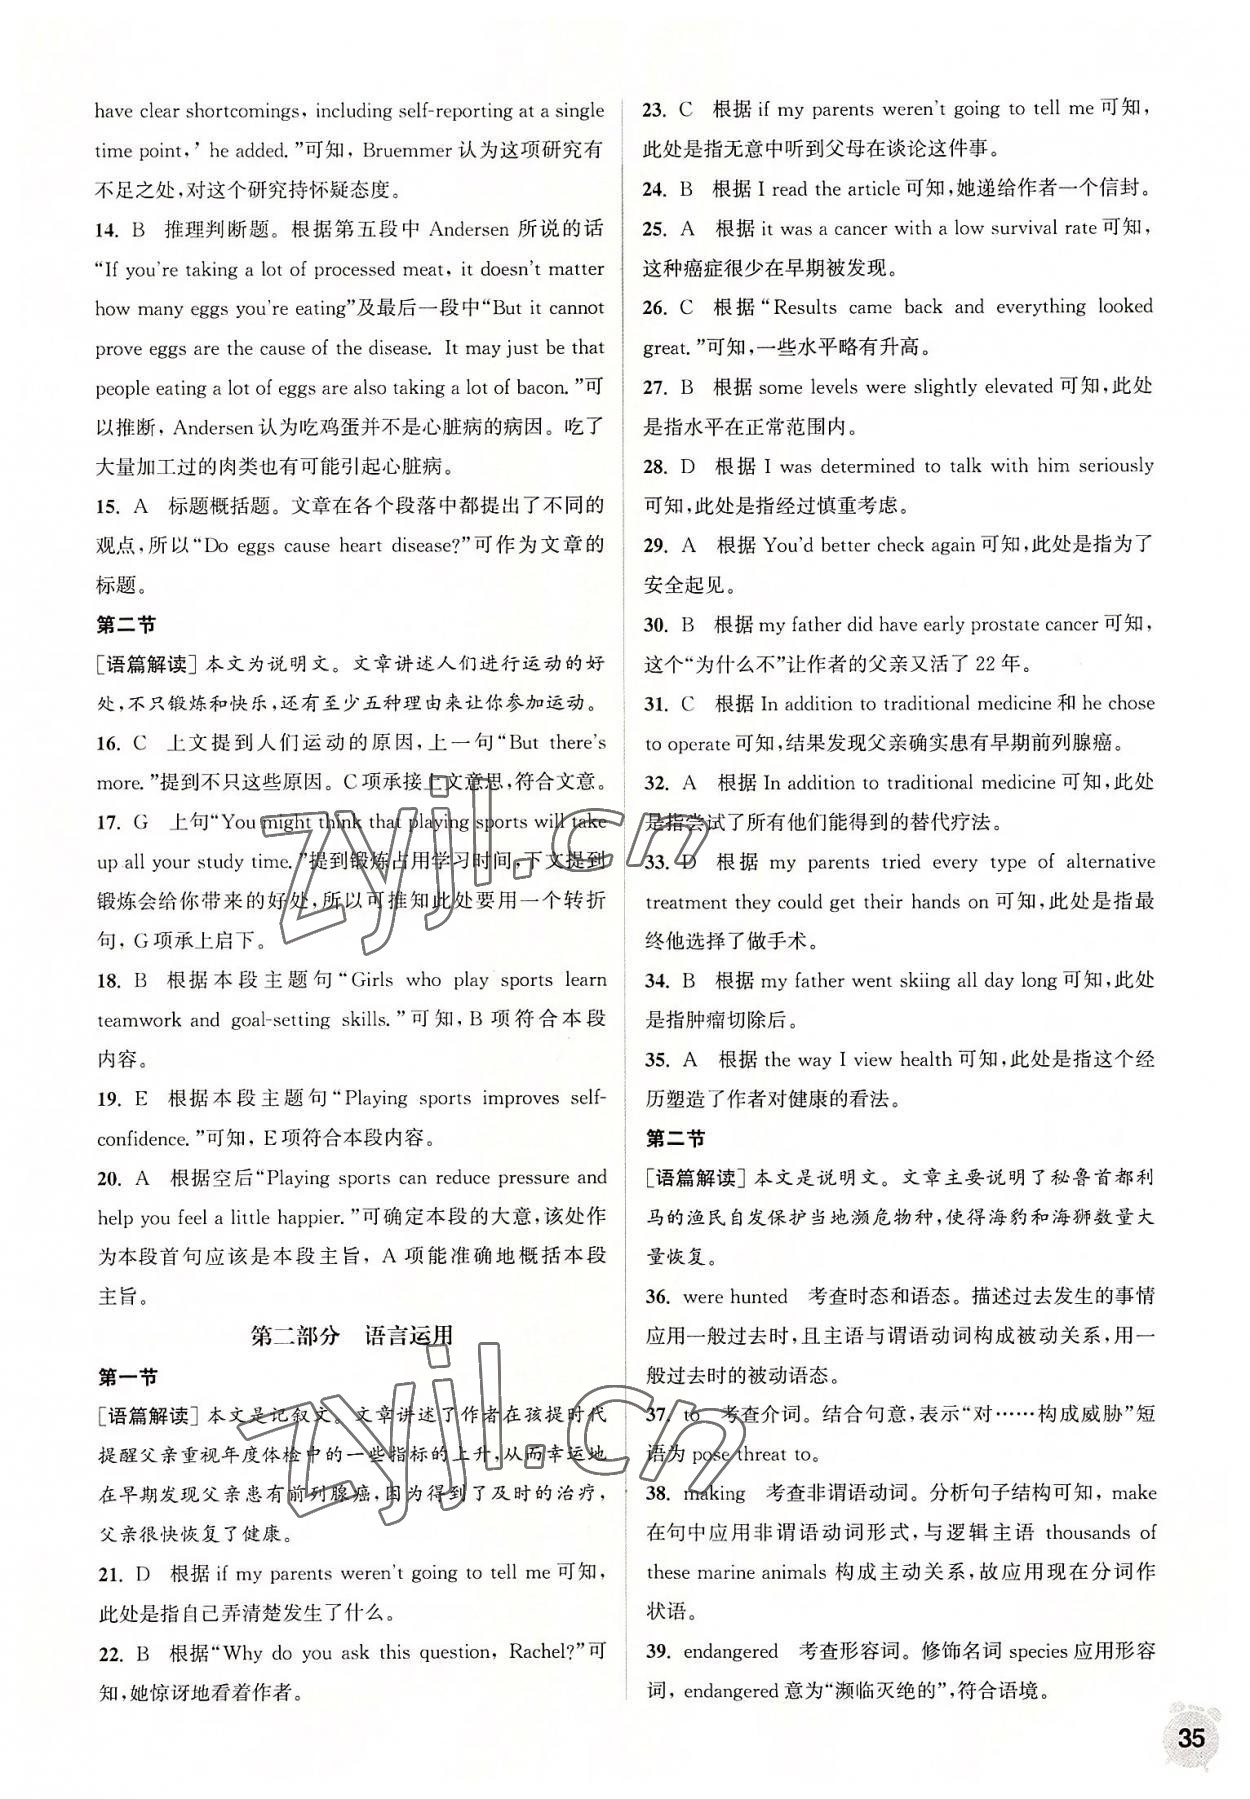 have clear shortcomings, including self-reporting at a single
time point,’ he added. ”可知，Bruemmer 认为这项研究有
不足之处，对这个研究持怀疑态度。
14. B 推理判断题。根据第五段中 Andersen 所说的话
“If you're taking a lot of processed meat, it doesn't matter
how many eggs you're eating”及最后一段中“But it cannot
prove eggs are the cause of the disease. It may just be that
people eating a lot of eggs are also taking a lot of bacon. ”可
以推断，Andersen 认为吃鸡蛋并不是心脏病的病因。吃了
大量加工过的肉类也有可能引起心脏病。
15. A 标题概括题。文章在各个段落中都提出了不同的
观点，所以“Do eggs cause heart disease?”可作为文章的
标题。
第二节
[语篇解读] 本文为说明文。文章讲述人们进行运动的好
处，不只锻炼和快乐，还有至少五种理由来让你参加运动。
16. C 上文提到人们运动的原因，上一句“But there's
more. ”提到不只这些原因。C 项承接上文意思，符合文意。
17. G 上句“You might think that playing sports will take
up all your study time. ”提到锻炼占用学习时间，下文提到
锻炼会给你带来的好处，所以可推知此处要用一个转折
句，G 项承上启下。
18. B 根据本段主题句“Girls who play sports learn
teamwork and goal-setting skills. ”可知，B 项符合本段
内容。
19. E 根据本段主题句“Playing sports improves self-
confidence. ”可知，E 项符合本段内容。
20. A 根据空后“Playing sports can reduce pressure and
help you feel a little happier. ”可确定本段的大意，该处作
为本段首句应该是本段主旨，A 项能准确地概括本段
主旨。
第二部分 语言运用
第一节
[语篇解读] 本文是记叙文。文章讲述了作者在孩提时代
提醒父亲重视年度体检中的一些指标的上升，从而幸运地
在早期发现父亲患有前列腺癌，因为得到了及时的治疗，
父亲很快恢复了健康。
21. D 根据 if my parents weren't going to tell me 可知，
此处是指自己弄清楚发生了什么。
22. B 根据“Why do you ask this question, Rachel?”可
知，她惊讶地看着作者。
23. C 根据 if my parents weren't going to tell me 可知，
此处是指无意中听到父母在谈论这件事。
24. B 根据 I read the article 可知，她递给作者一个信封。
25. A 根据 it was a cancer with a low survival rate 可知，
这种癌症很少在早期被发现。
26. C 根据“Results came back and everything looked
great. ”可知，一些水平略有升高。
27. B 根据 some levels were slightly elevated 可知，此处
是指水平在正常范围内。
28. D 根据 I was determined to talk with him seriously
可知，此处是指经过慎重考虑。
29. A 根据 You'd better check again 可知，此处是指为了
安全起见。
30. B 根据 my father did have early prostate cancer 可知，
这个“为什么不”让作者的父亲又活了 22 年。
31. C 根据 In addition to traditional medicine 和 he chose
to operate 可知，结果发现父亲确实患有早期前列腺癌。
32. A 根据 In addition to traditional medicine 可知，此处
是指尝试了所有他们能得到的替代疗法。
33. D 根据 my parents tried every type of alternative
treatment they could get their hands on 可知，此处是指最
终他选择了做手术。
34. B 根据 my father went skiing all day long 可知，此处
是指肿瘤切除后。
35. A 根据 the way I view health 可知，此处是指这个经
历塑造了作者对健康的看法。
第二节
[语篇解读] 本文是说明文。文章主要说明了秘鲁首都利
马的渔民自发保护当地濒危物种，使得海豹和海狮数量大
量恢复。
36. were hunted 考查时态和语态。描述过去发生的事情
应用一般过去时，且主语与谓语动词构成被动关系，用一
般过去时的被动语态。
37. to 考查介词。结合句意，表示“对……构成威胁”短
语为 pose threat to。
38. making 考查非谓语动词。分析句子结构可知，make
在句中应用非谓语动词形式，与逻辑主语 thousands of
these marine animals 构成主动关系，故应用现在分词作
状语。
39. endangered 考查形容词。修饰名词 species 应用形容
词，endangered 意为“濒临灭绝的”，符合语境。
35
zyjl.cn
zyjl.cn